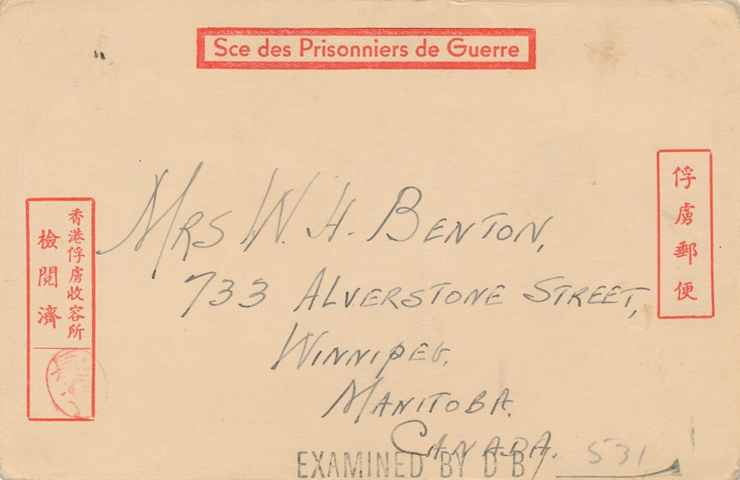 Sce des Prisonniers de Guerre
俘虜郵便
香港俘虜收容所
檢閲濟
MRS W. H. BENTON,
733 ALVERSTONE STREET,
WINNIPEG,
MANITOBA.
CANADA.
EXAMINED BY D B
531